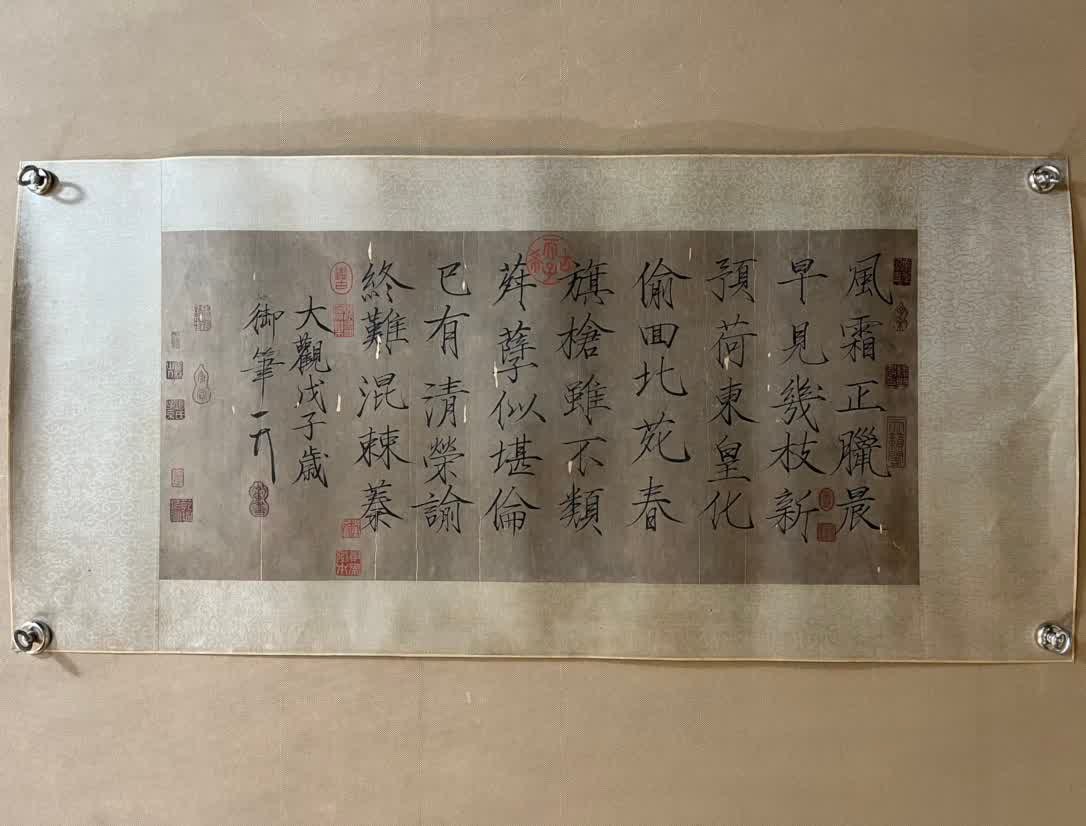 風霜正臘晨
早見幾枝新
預荷東皇化
偷回北苑春
旗槍雖不類
荈孽似堪倫
已有清榮諭
終難混棘蓁
大觀戊子歲
御筆
古希天子